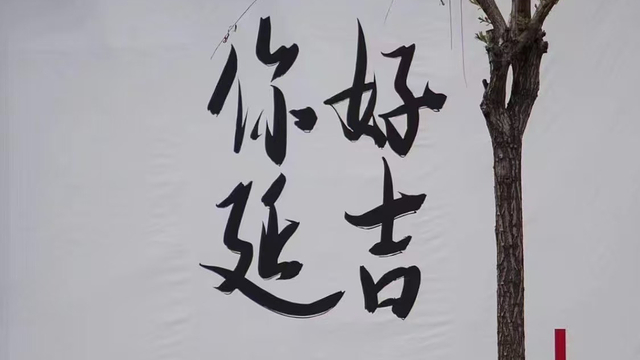 你好
延吉